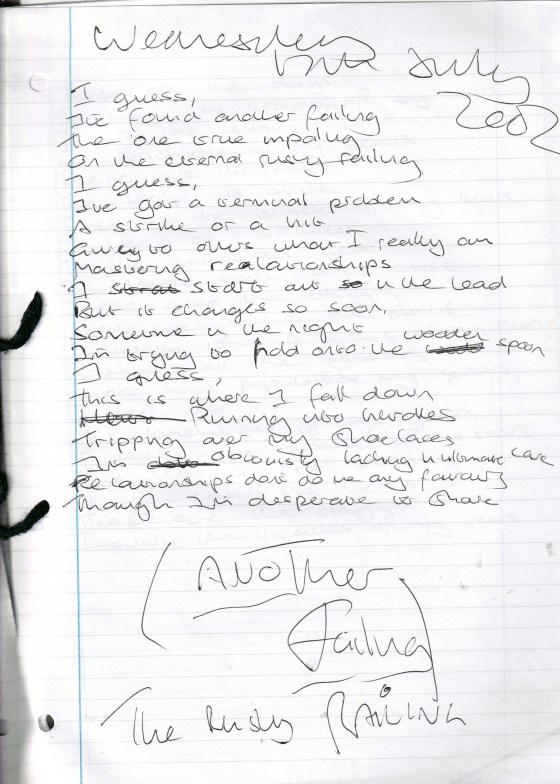 Wednesday
17th July
2002
I guess,
I've found another failing
The one true impaling
On the eternal rusty failing
I guess,
I've got a terminal problem
A strike or a hit
to others what I really am
Mastering realationships
I start out in the lead
But it changes so soon,
Someone in the night
I'm trying to hold onto the wooden spoon
I guess,
This is where I fall down
Running into hurdles
Tripping over my shoelaces
I'm obviously lacking in ultimate care
Relationships don't do me any favours
Though I'm desperate to share
(Another
Failing)
The Rusty RAILING